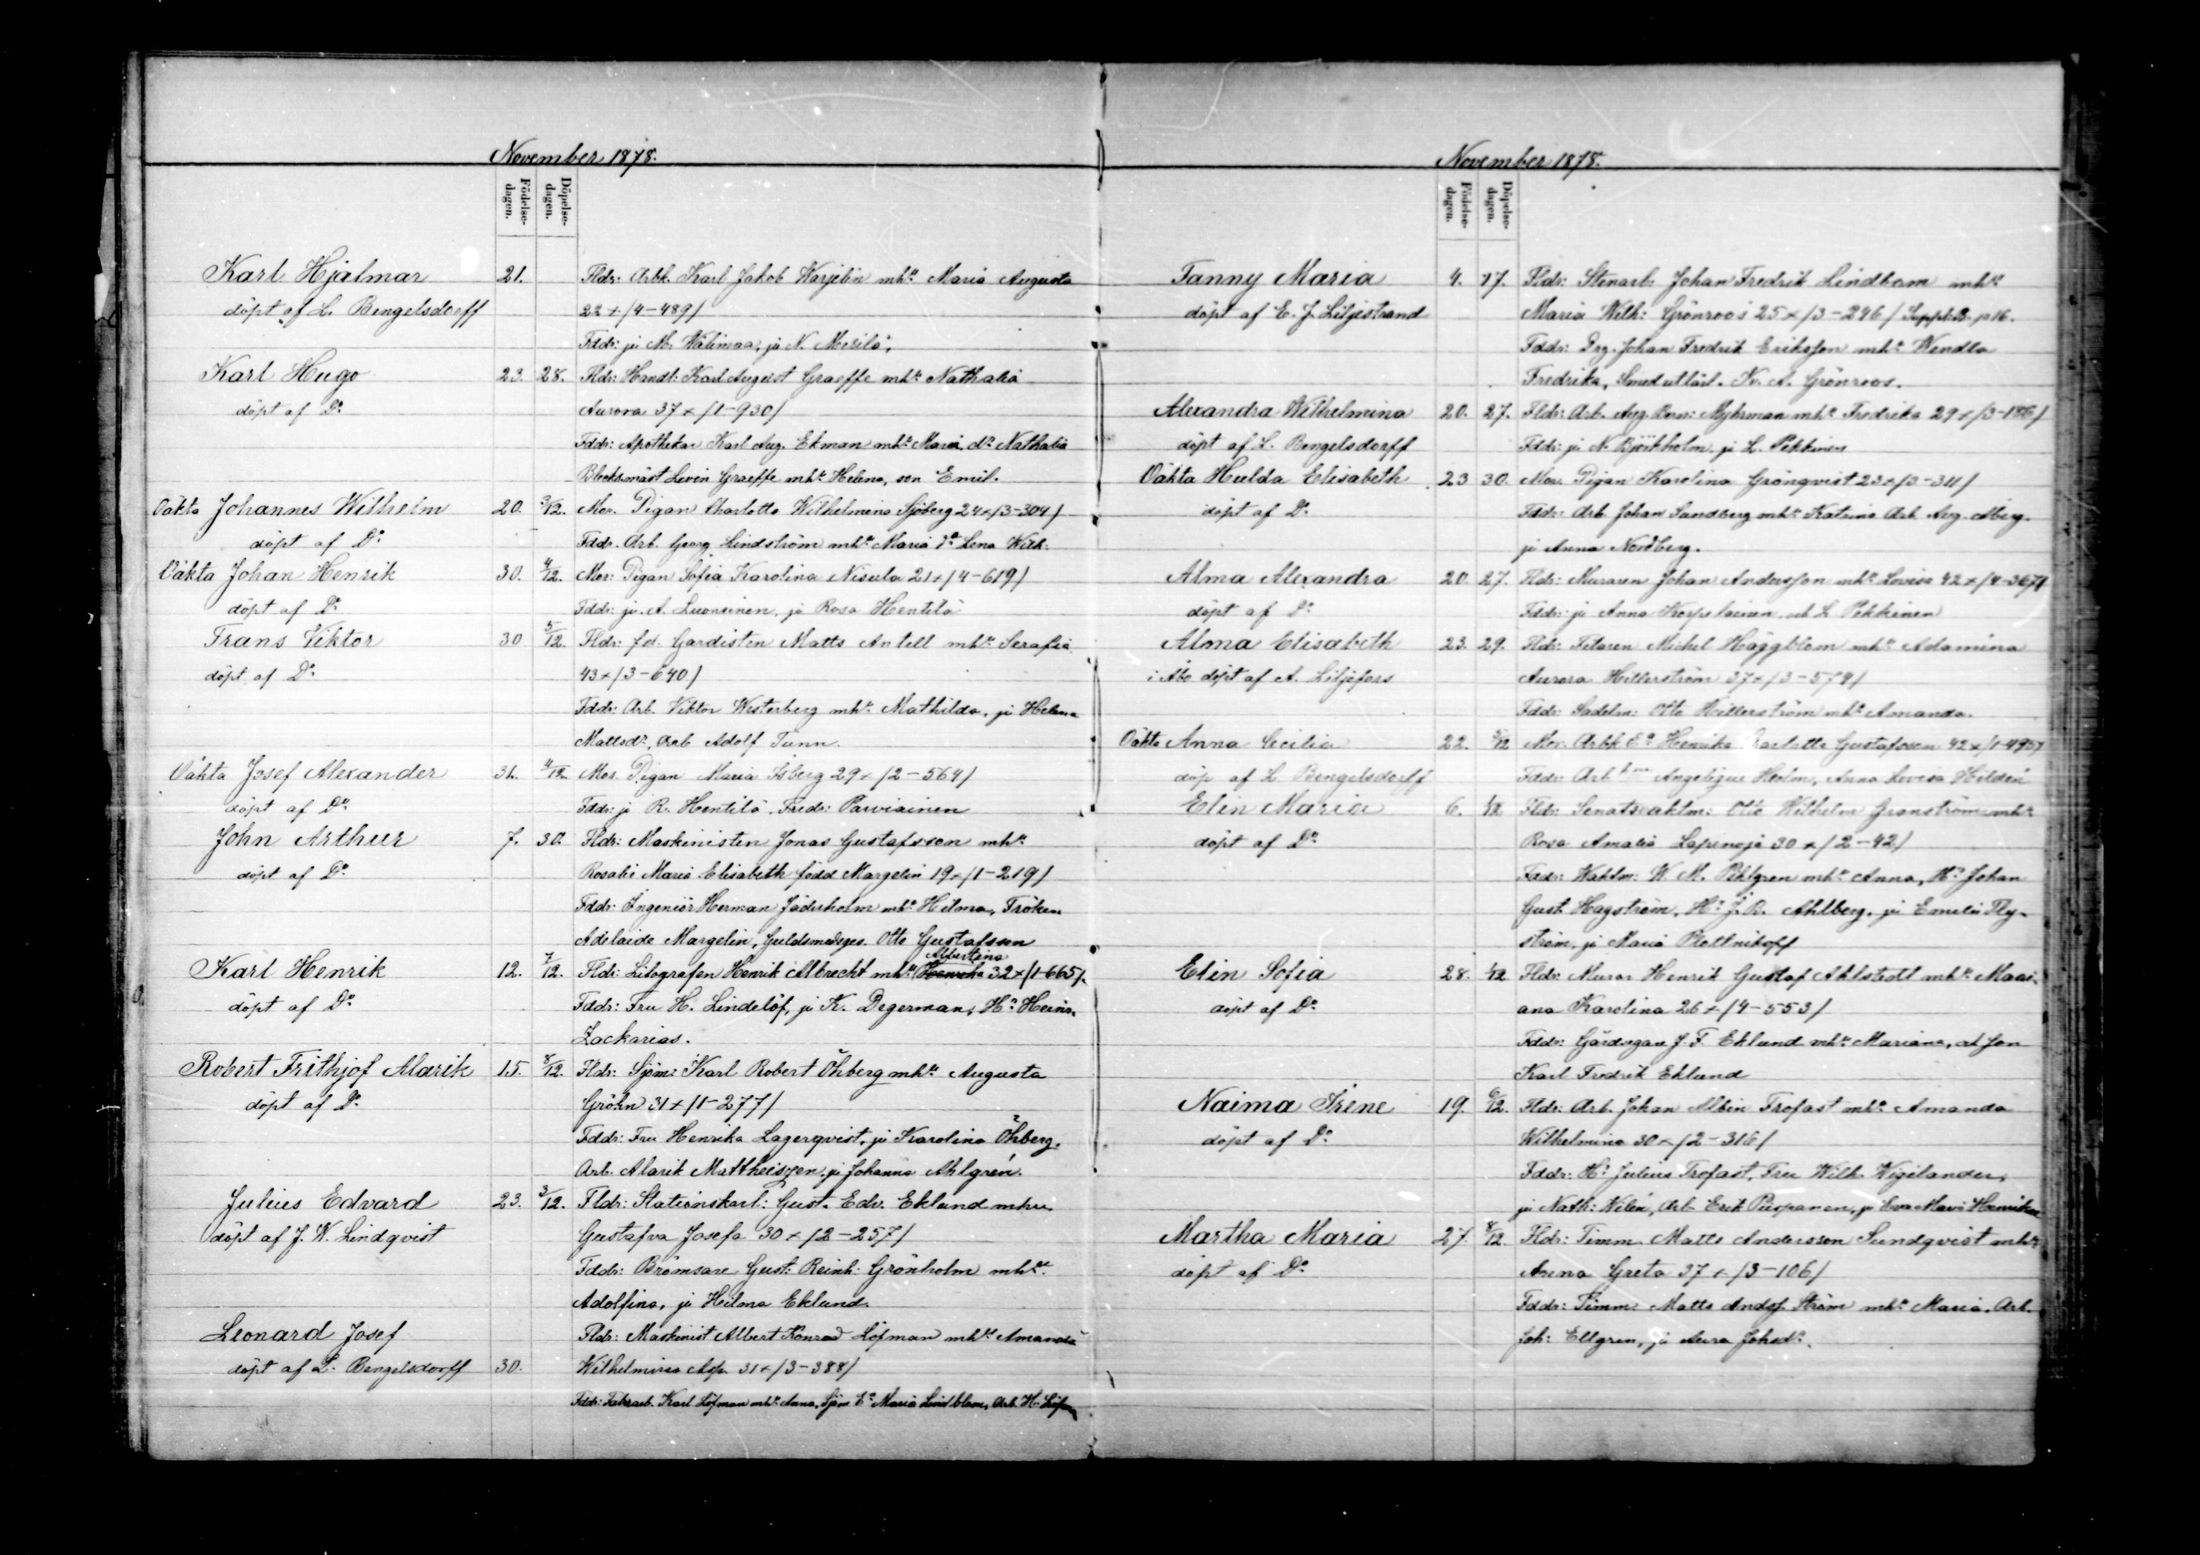 November 1878.
Födelse-dagen. Döpelse-dagen.
Karl Hjalmar 21. Fldr: Arbk. Karl Jakob Warjelin mh: Maria Augusta
döpt af L. Bengelsdorff 22 + /4-489/
Fddr: ji M. Wälimaa, ji N. Merilä.
Karl Hugo 23. 28. Fldr: Handl: Karl August Graeffe mh: Nathalia
döpt af Do Aurora 37 + /1-930/
Fddr: Apothekar Karl Aug. Ekman mh: Maria, dr Nathalia
Blocksmäst Levin Graeffe mh: Helena, son Emil.
Oäkta Johannes Wilhelm 20. 3/12. Mor. Pigan Charlotta Wilhelmina Sjöberg 24 + /3-304/
döpt af Do Fddr. Arb. Georg Lindström mh: Maria Lena Wilh:
Oäkta Johan Henrik 30. 4/12. Mor: Pigan Sofia Karolina Nisula 21 + /4-619/
döpt af Do Fddr: ji A. Luoneinen, ji Rosa Hentilä
Frans Viktor 30 5/12. Fldr: fd. Gardisten Matts Antell mh: Serafia
döpt af Do 43 + /3-640/
Fddr: Arb. Viktor Westerberg mh: Mathilda, ji Helena
Mattsdr, Arb Adolf Tunn.
Oäkta Josef Alexander 31. 4/12. Mor. Pigan Maria Isberg 29 + /2-564/
döpt af Do Fddr: ji R. Hentilä. Fredr: Parviainen
John Arthur 7. 30. Fldr: Maskinisten Jonas Gustafsson mh:
döpt af Do Rosalie Maria Elisabeth född Margelin 19 + /1-219/
Fddr: Ingeniör Herman Jäderholm mh: Hilma, Fröken
Adelaide Margelin, Guldsmedsges. Otto Gustafsson
Albertina
Karl Henrik 12. 7/12. Fldr: Litografen Henrik Albrecht mh: 32 + /1-665/.
döpt af Do Fddr: Fru H. Lindelöf, ji K. Degerman, Hr Heinr.
Zackarias.
Robert Frithjof Alarik 15. 8/12. Fldr: Sjöm: Karl Robert Öhberg mh: Augusta
döpt af Do Gröhn 31 + /1-277/
Fddr: Fru Henrika Lagerqvist, ji Karolina Öhberg.
Arb. Alarik Mattheiszen, ji Johanna Ahlgrén.
Julius Edvard 23. 3/12. Fldr: Stationskarl: Gust. Edv. Eklund mhu
döpt af J. W. Lindqvist Gustafva Josefa 30 + /2-257/
Fddr: Bromsare Gust: Reinh: Grönholm mh:
Adolfina, ji Hilma Eklund.
Leonard Josef Fldr: Maskinist Albert Konrad Löfman mh: Amanda
döpt af L. Bengelsdorff 30. Wilhelmina Asp 31 + /3-388/
Fddr: Fabrarb. Karl Löfman mh: Anna, Sjöm Ea Maria Lindblom, Arb. H. Löfm
November 1878.
Födelse-dagen. Döpelse-dagen.
Fanny Maria 4. 17. Fldr: Stenarb: Johan Fredrik Lindbom mh:
döpt af E. J. Liljestrand Maria Wilh: Grönroos 25 + /3-246/ p 16.
Fddr: Drg. Johan Fredrik Eriksson mh: Wendla
Fredrika, Smedutlärl. Kr. A. Grönroos.
Alexandra Wilhelmina 20. 27. Fldr: Arb. Aug. Bern: Myhrman mh: Fredrika 29 + /3-186/
döpt af L. Bengelsdorff Fddr: ji N. Björkholm, ji L. Pekkinen
Oäkta Hulda Elisabeth 23 30. Mor. Pigan Karolina Grönqvist 23 + /3-311/
döpt af Do Fddr: Arb. Johan Sandberg mh: Katrina Arb. Aug. Åberg.
ji Anna Nordberg.
Alma Alexandra 20. 27. Fldr: Muraren Johan Andersson mh: Lovisa 42 + /4-367/
döpt af Do Fddr: ji Anna Korpelainen och L. Pekkinen
Alma Elisabeth 23. 29. Fldr: Filaren Michel Häggblom mh: Adamina
i Åbo döpt af A. Liljefors Aurora Hillerström 37 + /3-574/
Fddr: Sadelm: Otto Hillerström mh: Amanda.
Oäkta Anna Cecilia 22. Mor. Arbk Ea Henrika Charlotta Gustafsson 42 + /1-495/
döp af L. Bengelsdorff Fddr: Arb Angelique Holm, Anna Lovisa Hildén
Elin Maria 6. 1/12 Fldr: Senatsvaktm: Otto Wilhelm Granström mh:
döpt af Do Rosa Amalia Lapinoja 30 + /2-42/
Fddr: Waktm: W. M. Pihlgren mh: Anna, Hr Johan
Gust. Hagström, Hr J. R. Ahlberg, ji Emilia Fly-
ström, ji Maria Plottnikoff
Elin Sofia 28. 1/12 Fldr: Murar Henrik Gustaf Ahlstedt mh: Mari-
döpt af Do ana Karolina 26 + /4-553/
Fddr: Gårdsegare J. F. Eklund mh: Mariana, och Son
Karl Fredrik Eklund
Naima Irene 19. 6/12. Fldr: Arb. Johan Albin Trofast mh: Amanda
döpt af Do Wilhelmina 30 + /2-316/
Fddr: Hr Julius Trofast, Fru Wilh. Wigelander,
ji Nath: Wilén, Arb. Erik Piispanen, ji Eva Maria
Martha Maria 27. 8/12. Fldr: Timm. Matts Andersson Sundqvist mh:
döpt af Do Anna Greta 37 + /3-106/
Fddr: Timm Matts Andsf. Ström mh: Maria, Arb.
Joh: Ellgren, ji Aura Johsdr.